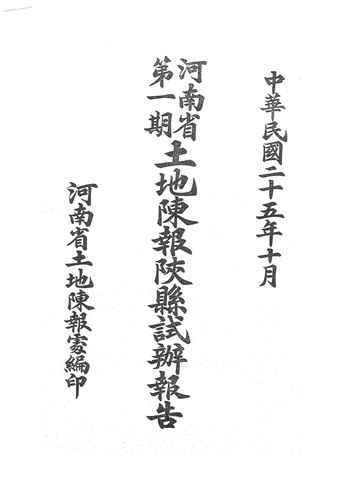 中華民國二十五年十月
河南省
第一期
土地陳報陝縣試辦報告
河南省土地陳報處編印